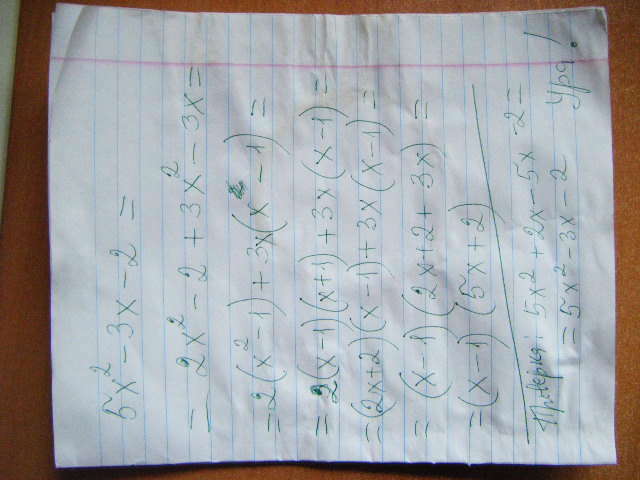 5x² - 3x - 2 =
= 2x² - 2 + 3x² - 3x =
= 2(x² - 1) + 3x(x - 1) =
= 2(x - 1)(x + 1) + 3x(x - 1) =
= (2x + 2)(x - 1) + 3x(x - 1) =
= (x - 1)(2x + 2 + 3x) =
= (x - 1)(5x + 2)
Проверка: 5x² + 2x - 5x - 2 =
= 5x² - 3x - 2 Ура!